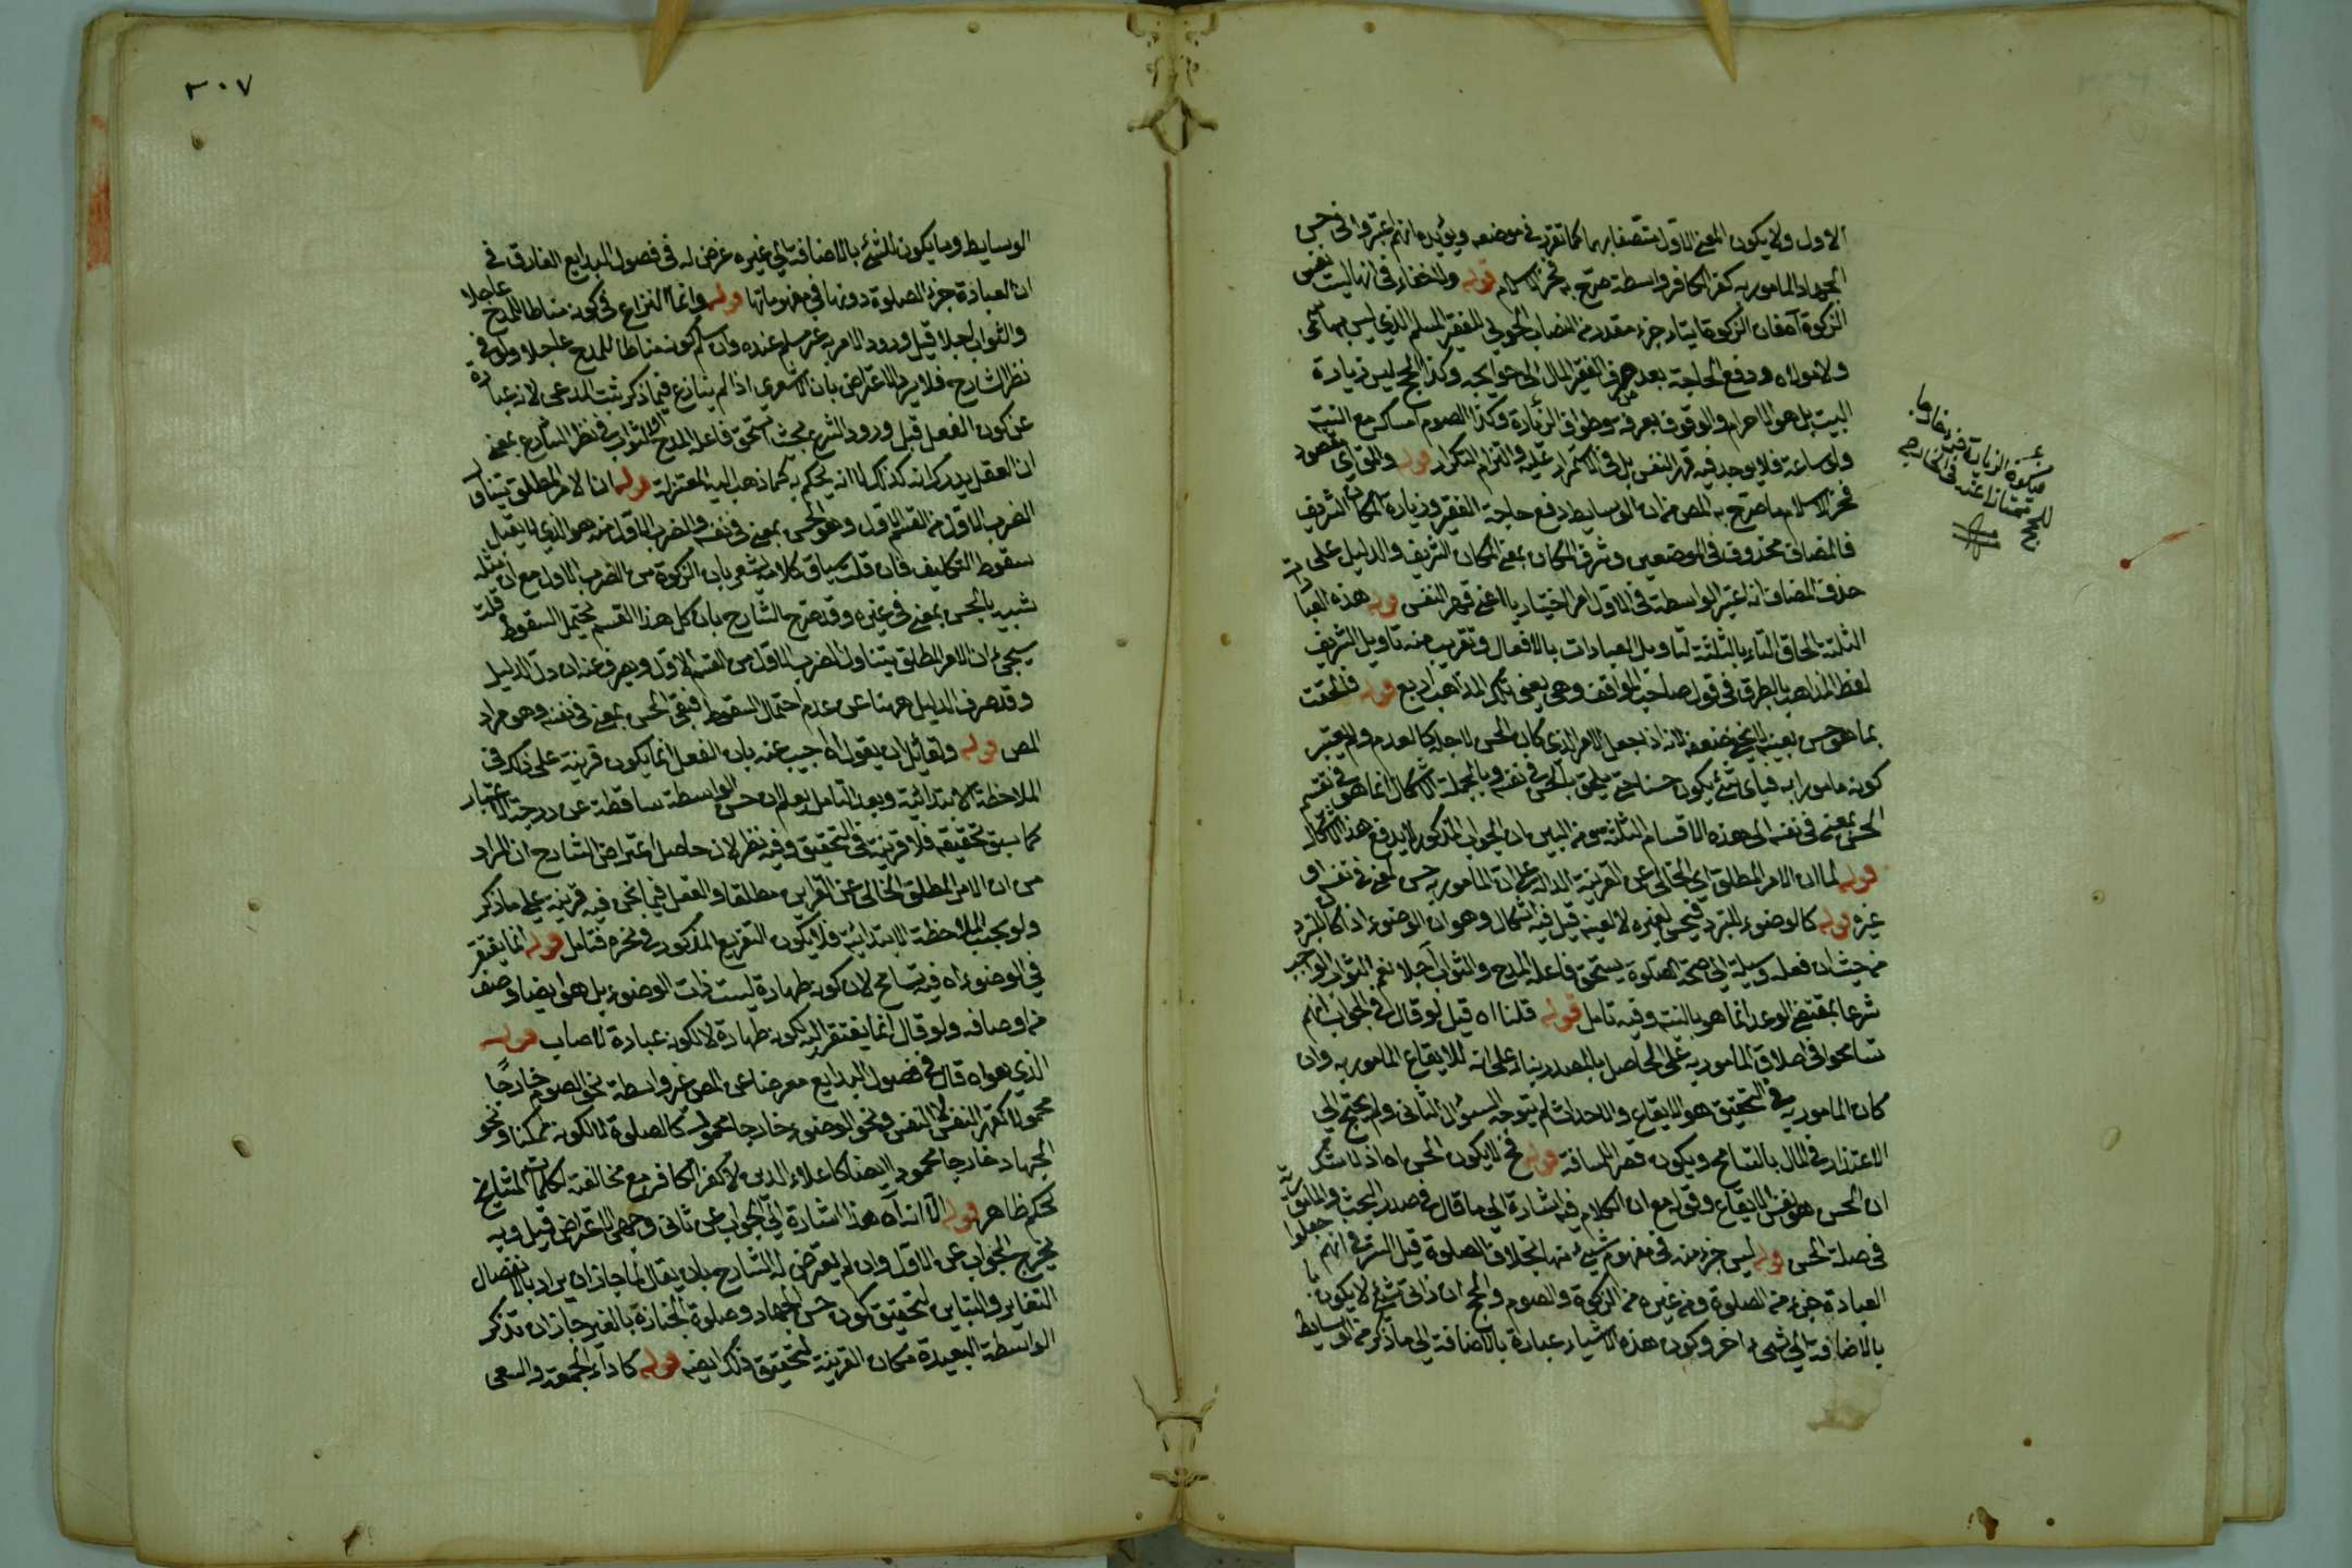 الاول ولا يكون المعنى الاول متصفا بها كما تقرر في موضعه ويؤيده انهم اعتبروا في حسن
الجهاد المأمور به كفر الكافر واسطة صرح به فخر الاسلام قوله ولا خفاء في انها ليست نفس
الزكوة آه فان الزكوة ايتاء جزء مقدر من النصاب الحولي للفقير المسلم الذي ليس بهاشمي
ولا مولاه ودفع الحاجة بعد صرف الفقير المال الى حوايجه وكذا الحج ليس زيارة
البيت بل هو الاحرام والوقوف بعرفه وطواف الزيارة وكذا الصوم امساك مع النية
ولو ساعة فلا يوجد فيه قهر النفس بل في الاستمرار عليه والتزام التكرار قوله والثاني مقصود
فخر الاسلام ما صرح به المص من ان الوسايط دفع حاجة الفقير وزيارة المكان الشريف
فالمضاف محذوف في الموضعين وشرف المكان بمعنى المكان الشريف والدليل على
حذف المضاف انه اعتبر الواسطة في الاول امرا اختياريا اعني قهر النفس قوله هذه العبادات
الثلثة بالحاق التاء بالثلثة لتأويل العبادات بالافعال وتقريب منه تاويل الشريف
لفظ المذاهب بالطرق في قول صاحب المواقف وهي يعني تلك المذاهب اربع قوله فالتحقت
بما هو حسن بعينه لا يخفى ضعفه لانه اذا جعل الامر الذي كان الحسن لاجله كالعدم ولم يعتبر
كونه مامورا به فباي شئ يكون حسنا حتى يلحق بالحسن في نفسه وبالجملة الاشكال انما هو في تقسيم
الحسن بمعنى في نفسه الى هذه الاقسام الثلثة ومن البين ان الجواب المذكور لا يدفع هذا الاشكال
قوله لما ان الامر المطلق اي الخالي عن القرينة الدالة على ان المأمور به حسن لمعنى في نفسه او
غيره قوله كالوضوء للتبرد فيحسن لغيره لا لعينه قيل فيه اشكال وهو ان الوضوء اذا كان للتبرد
من حيث ان فعله وسيلة الى صحة الصلوة يستحق فاعله المدح والثواب آجلا نعم الثواب الواجب
شرعا بمقتضى الوعد انما هو بالنية وفيه تامل قوله قلنا اه قيل لو قال في الجواب انهم
تسامحوا في اطلاق المأمور به على الحاصل بالمصدر بناء على انه للايقاع المامور به وان
كان المامور به في التحقيق هو الايقاع والاحداث لم يتوجه السؤال الثاني ولم يحتج الى
الاعتذار في المآل بالتسامح ويكون قصر المسافة قوله فح لا يكون الحسن اه اذ لا شك
ان الحسن هو نفس الايقاع وقوله مع ان الكلام فيه اشارة الى ما قال في صدر البحث
في صلة الحسن قوله ليس جزء منه في مفهوم شيئ منها بخلاف الصلوة قيل السر في انهم جعلوا
العبادة جزء من الصلوة ومن غيره من الزكوة والصوم والحج ان ذاتي شئ لا يكون
بالاضافة الى شئ اخر وكون هذه الاشياء عبادة بالاضافة الى ما ذكر من الوسايط
٣٠٧
الوسايط وما يكون للشئ بالاضافة الى غيره عرض له في فصول البدايع الفارق في
ان العبادة جزء الصلوة دونها في مفهوماتها قوله وانما النزاع في كونه مناطا للمدح عاجلا
والثواب اجلا قبل ورود الامر به غير مسلم عنده وان سلم كونه مناطا للمدح عاجلا ولو في
نظر الشارح فلا يرد الاعتراض بان الاشعري اذا لم ينازع فيما ذكر يثبت المدعى لانه عبارة
عن كون الفعل قبل ورود الشرع بحيث يستحق فاعله المدح والثواب في نظر الشارع بمعنى
ان العقل يدرك انه كذلك لا انه يحكم به كما ذهب اليه المعتزلة قوله ان الامر المطلق يتناول
الضرب الاول من القسم الاول وهو الحسن بمعنى في نفسه والضرب الاول منه هو الذي لا يقبل
سقوط التكليف فان قلت سياق كلامه يشعر بان الزكوة من الضرب الاول مع ان مثله
شبيه بالحسن بمعنى في غيره وقد صرح الشارح بان كل هذا القسم يحتمل السقوط قلت
سيجئ ان الامر المطلق يتناول الضرب الاول من القسم الاول ويصرف عنه ان دل الدليل
وقد صرف الدليل ههنا عن عدم احتمال السقوط فبقي الحسن بمعنى في نفسه وهو مراد
المص قوله ولقائل ان يقول آه اجيب عنه بان الفعل انما يكون قرينة على ذلك في
الملاحظة الابتدائية وبعد التامل يعلم ان حسن الواسطة ساقطة عن درجة الاعتبار
كما سبق تحقيقه فلا قرينة في التحقيق وفيه نظر لان حاصل اعتراض الشارح ان المراد
من ان الامر المطلق الخالي عن القراين مطلقا والفعل فيما نحن فيه قرينة على ما ذكر
ولو بحسب الملاحظة الابتدائية فلا يكون التفريع المذكور في مخرجه فتامل قوله انما يفتقر
في الوضوء اه فيه تسامح لان كونه طهارة ليست ذات الوضوء بل هو ايضا وصف
من اوصافه ولو قال انما يفتقر اليه لكونه طهارة لا لكونه عبادة لاصاب قوله
الذي هو اه قال في فصول البدايع معرضا عن المص غير واسطة نحو الصوم خارجا
محمولا كقهر النفس لا النفس ونحو الوضوء خارجا محمولا كالصلوة لا لكونه تمكنا ونحو
الجهاد خارجا محمودا ايضا كاعلاء الدين لا كفر الكافر مع مخالفته لكلام المشايخ
تحكم ظاهر قوله الا انه آه هذا اشارة الى الجواب عن ثاني وجهي الاعتراض قيل وبه
يخرج الجواب عن الاول وان لم يتعرض له الشارح بان يقال لما جاز ان يراد بالانفصال
التغاير والتباين لتحقيق كون حسن الجهاد وصلوة الجنازة بالغير جاز ان تذكر
الواسطة البعيدة مكان القريبة لتحقيق ذلك ايضه قوله كاداء الجمعة والسعي